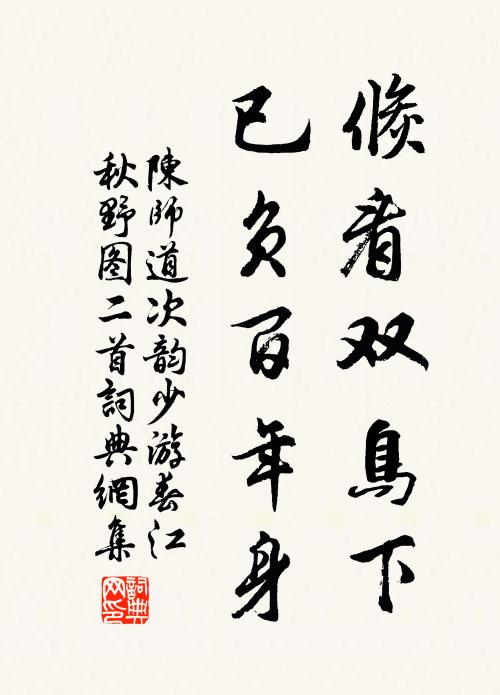 倏看双鳥下
已负百年身
陳師道次韵少游春江
秋野图二首詞典網集
詞典
网印